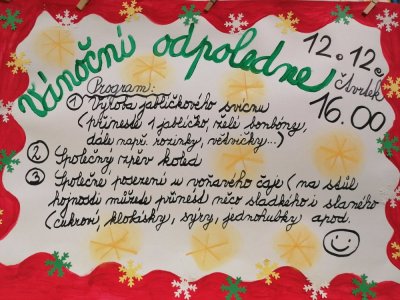 Vánoční odpoledne
12.12.
čtvrtek
16.00
Program:
① Výroba jablíčkového svícnu
(přineste 1 jablíčko, želé bonbóny,
dále např. rozinky, větvičky...)
② Společný zpěv koled
③ Společné posezení u voňavého čaje (na stůl
hojnosti můžete přinést něco sladkého i slaného
(cukroví, klobásky, sýry, jednohubky apod.